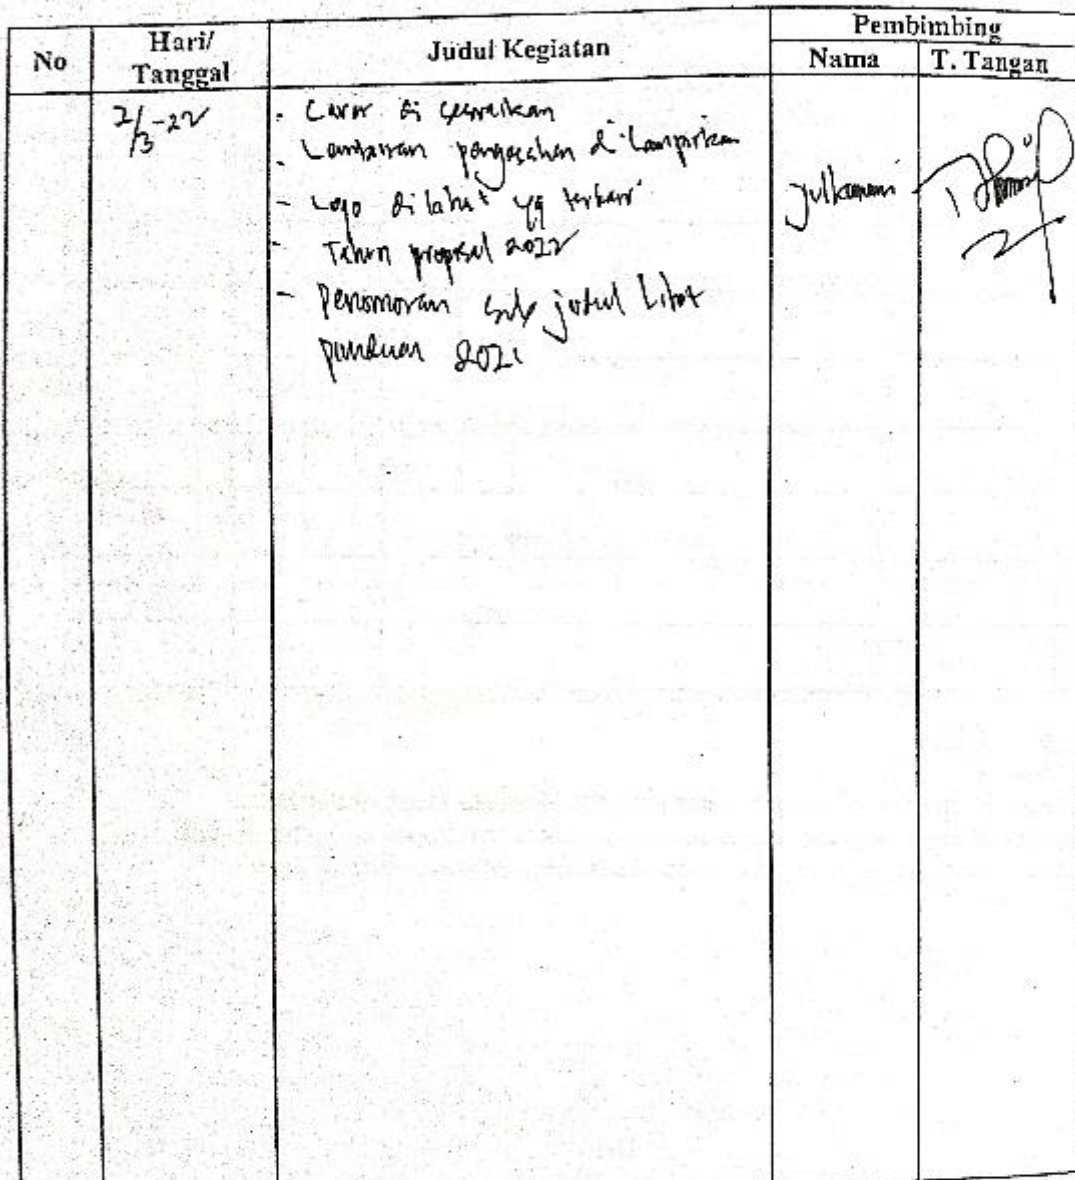 No Hari/ Tanggal Judul Kegiatan Pembimbing
Nama T. Tangan
2/3-22
- Cover di sesuaikan
- Lembaran pengesahan di lampirkan
- Logo di lihat yg terbaru
- Tahun proposal 2022
- Penomoran sub judul Lihat
panduan 2021